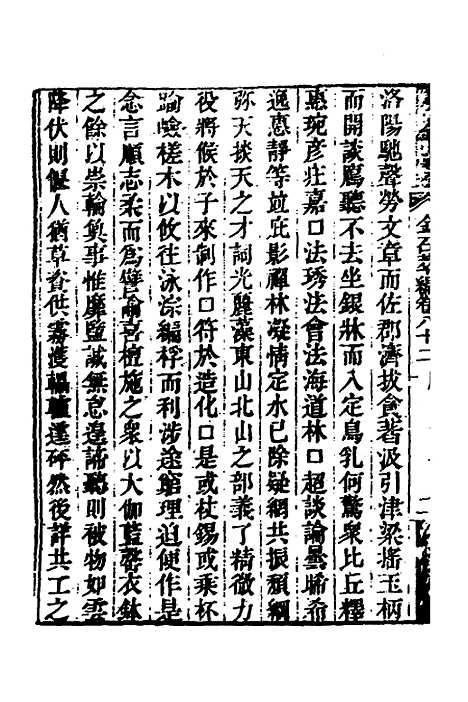 洛陽馳聲勞文章而佐郡濟拔貪著汲引津梁搖玉柄
而開談鴈聽不去坐銀牀而入定鳥乳何驚衆比丘釋
惠琬彥莊嘉口法琇法會法海道林口超談論曇晞希
逸惠靜等竝庇影禪林凝情定水已除疑網共振頹綱
弥天掞天之才詞光麗藻東山北山之部義了精微力
役將候於子來制作口符於造化口是或杖錫或乘杯
踰嶮槎木以攸往泳淙編桴而利涉途窮理迫便作是
念言順志柔而爲譬喻喜檀施之衆以大伽藍罄衣鉢
之餘以崇輪奐事惟靡盬誠無怠遑誦聽則被物如雲
降伏則偃人猶草香供霧濩轀轤遝砰然後詳共工之
金石萃編卷八十二